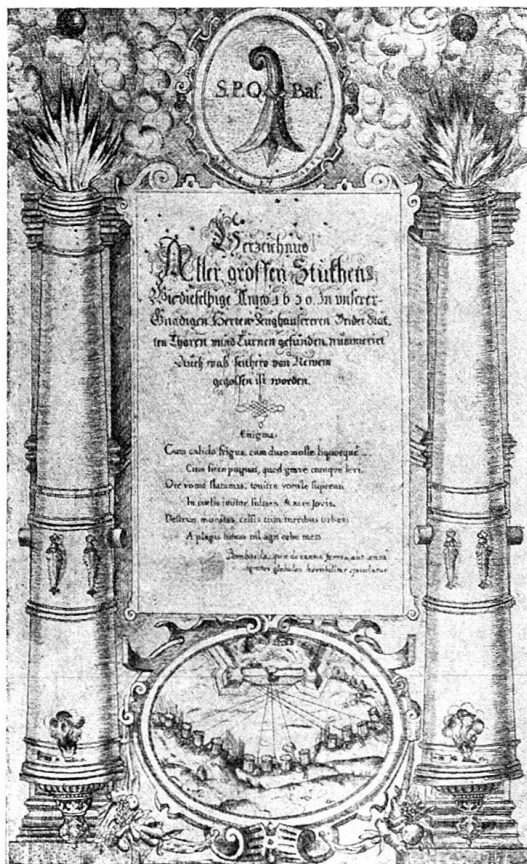 S.P.Q. Bas.
Verzeichnus
Aller grossen Stukhens,
Wie dieselbige Anno 1630. In unserer
Gnädigen Herren Zeughausereren Beider Stat
ten Thoren unnd Türnen gefunden, nummeriert
Auch was seithero von Newem
gegossen ist worden.
Enigma.
Cum calido frigus, cum duro molle, liquorque
Cum sicco pugnat, quod grave cumque levi.
Ore vomo flammas, tonitru
In cœlis imitor fulmen, & arma Jovis.
Destruo munitas, celsis cum turribus urbes;
A plagis nil agit orbe meis
Bombarda, que
globulos horribiliter ejaculatur